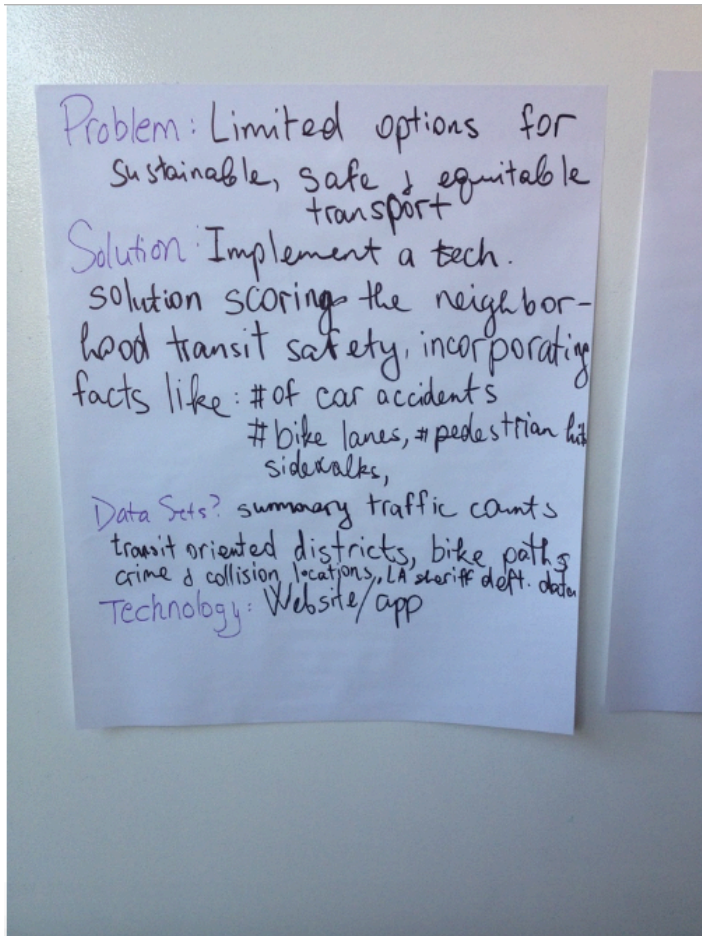 Problem: Limited options for
sustainable, safe & equitable
transport
Solution: Implement a tech.
solution scoring the neighbor-
hood transit safety, incorporating
facts like: # of car accidents
# bike lanes, # pedestrian hit
sidewalks,
Data Sets? summary traffic counts
transit oriented districts, bike paths
crime & collision locations, LA sheriff deft. data
Technology: Website/app